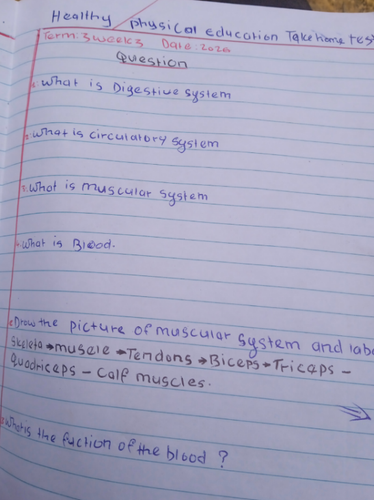 Healthy physical education Take home test
Term: 3 week 3 Date: 2020
Question
1. What is Digestive system
2. What is circulatory system
3. What is muscular system
4. What is Blood.
Draw the picture of muscular system and labe
skeleta → muscle → Tendons → Biceps → Triceps -
quadriceps - Calf muscles.
What is the fuction of the blood ?